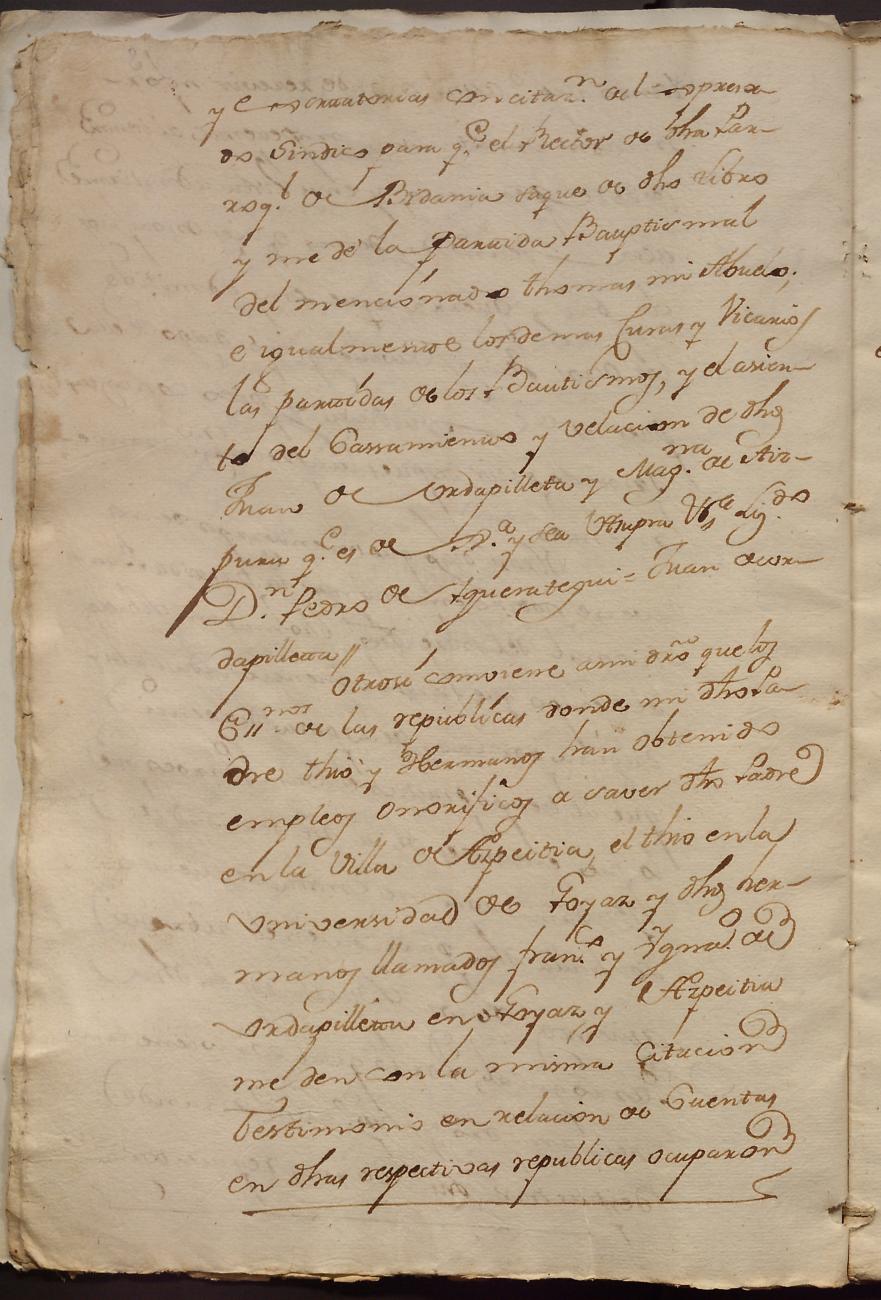 y e socuatorias con citaz.n del expresa-
do Sindico para q.e el Rector de dha Par-
roq.l de Bidania saque de dho Libro
y me dé la partida Bauptismal
del mencionado thomas mi Abuelo,
e igualmente los demas Curas y Vicarios
las partidas de los Bautismos, y el asien-
to del Cassamiento y Velacion de dhos
Juan de Urdapilleta y Mag.na de Aiz-
puru q.e es de
D.n Pedro de Eguerategui = Juan de Ur-
dapilleta //
Otrosi comviene a mi dró que los
Ess.nos de las republicas donde mi dho Pa-
dre thio y Hermanos hán obtenido
empleos onorificos a saver dho Padre
en la Villa de Azpeitia, el thio en la
Universidad de Goyaz y dhos her-
manos llamados Fran.co y Ygna.o de
Urdapilleta en Goyaz y Azpeitia
me den con la misma Citacion
testimonio en relacion de Cuentas
en dhas respectivas republicas ocuparon